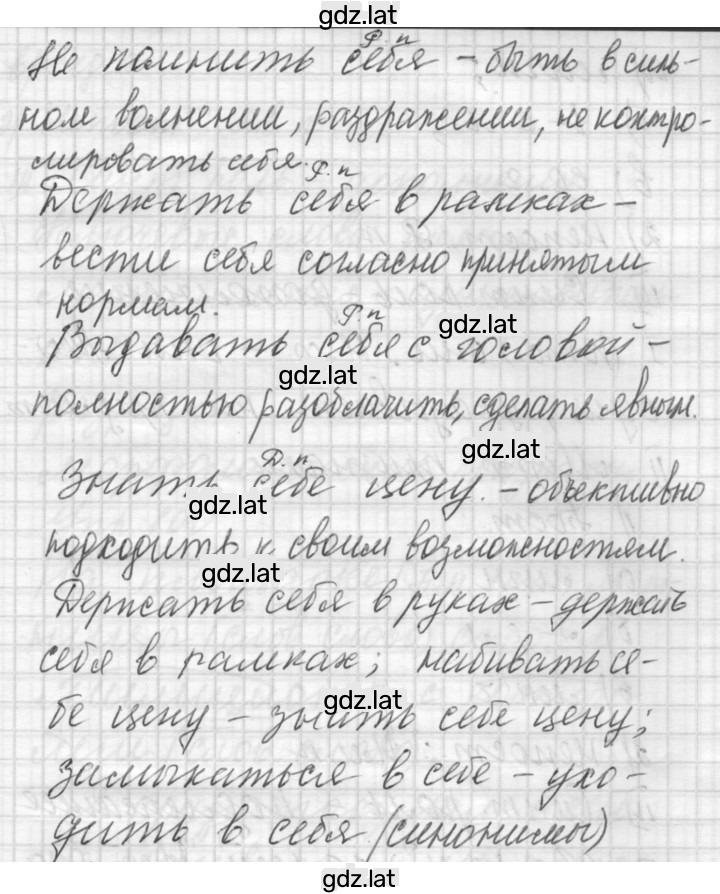 gdz.lat
Р. п
Не помнить себя – быть в силь-
ном волнении, раздражении, не контро-
лировать себя.
Р. п
Держать себя в рамках –
вести себя согласно принятым
нормам.
Р. п
gdz.lat
Выдавать себя с головой –
gdz.lat
полностью разоблачить, сделать явным.
gdz.lat
Д. п
Знать себе цену. – объективно
gdz.lat
подходить к своим возможностям.
gdz.lat
Держать себя в руках – держать
себя в рамках; набивать се-
gdz.lat
бе цену – знать себе цену;
замыкаться в себе – ухо-
дить в себя (синонимы)
gdz.lat